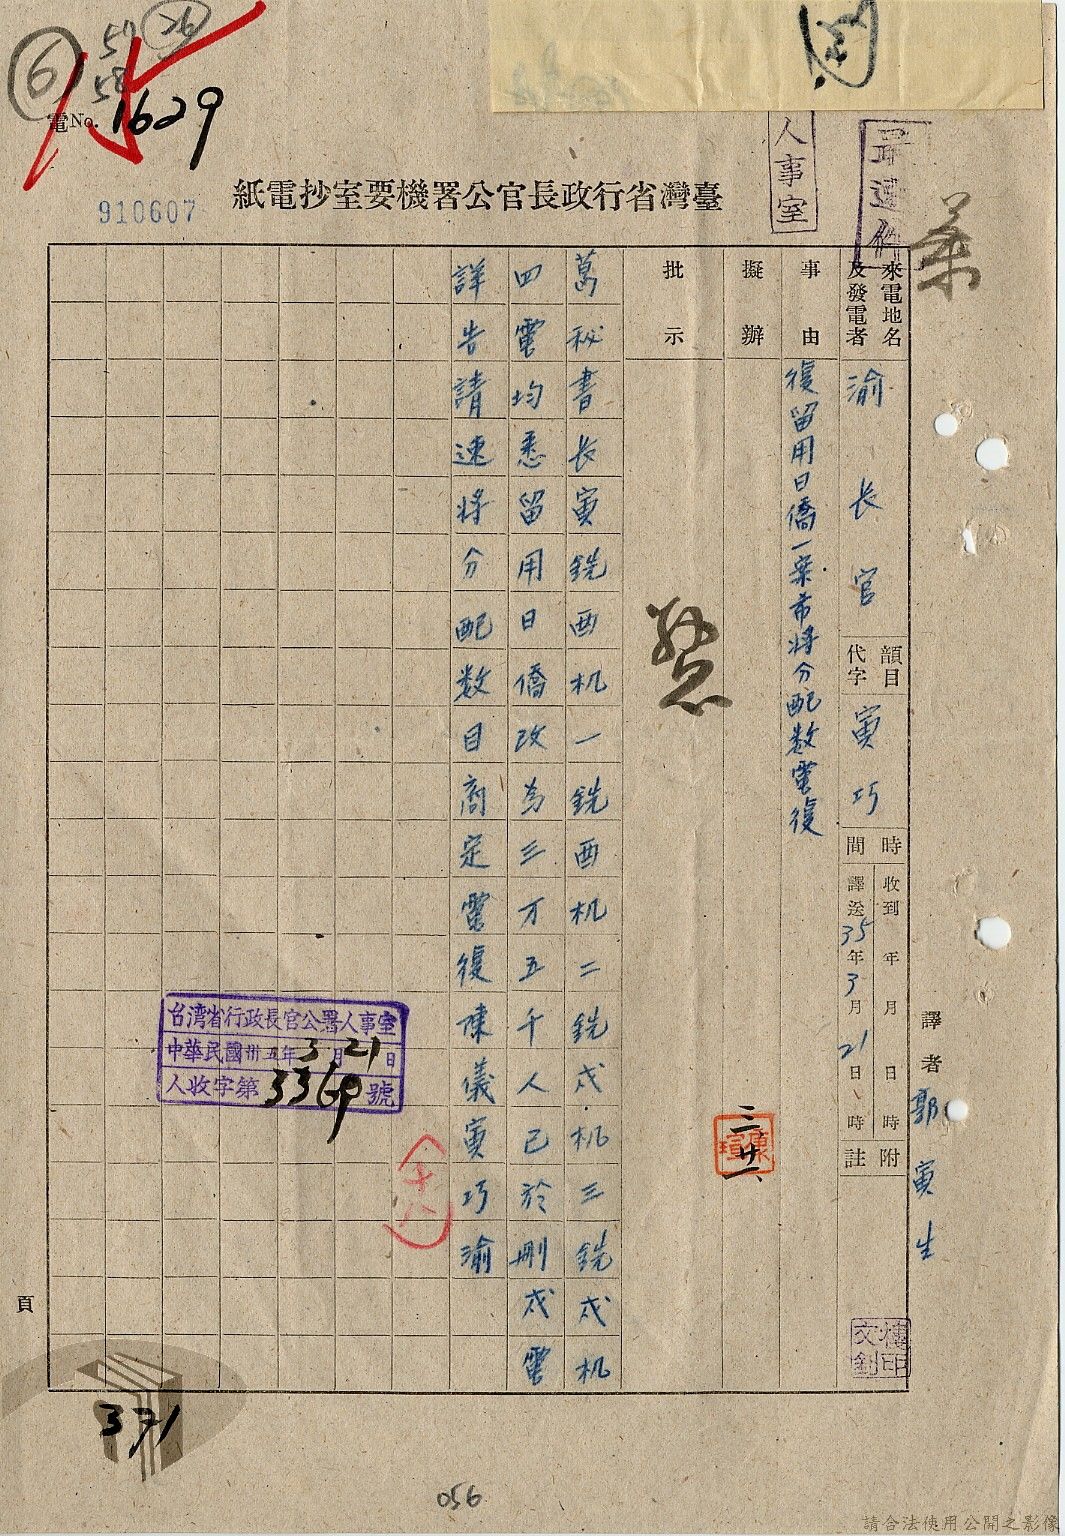 6
57
58
26
電No. 1629
910607
臺灣省行政長官公署機要室抄電紙
人事室
最速件
來電地名及發電者
渝 長官
韻目代字
寅巧
時間
收到 年 月 日 時
譯送 35年3月21日 時
附註
譯者 郭寅生
事由
復留用日僑一案希將分配数電復
擬辦
批示
悉
三廿一
葛秘書長寅銑酉机一銑酉机二銑戌机三銑戌机
四電均悉留用日僑改為三万五千人已於刪戌電
詳告請速將分配数目商定電復陳儀寅巧渝
台湾省行政長官公署人事室
中華民國卅五年3月21日
人收字第3369號
十八
頁
371
056
請合法使用公開之影像